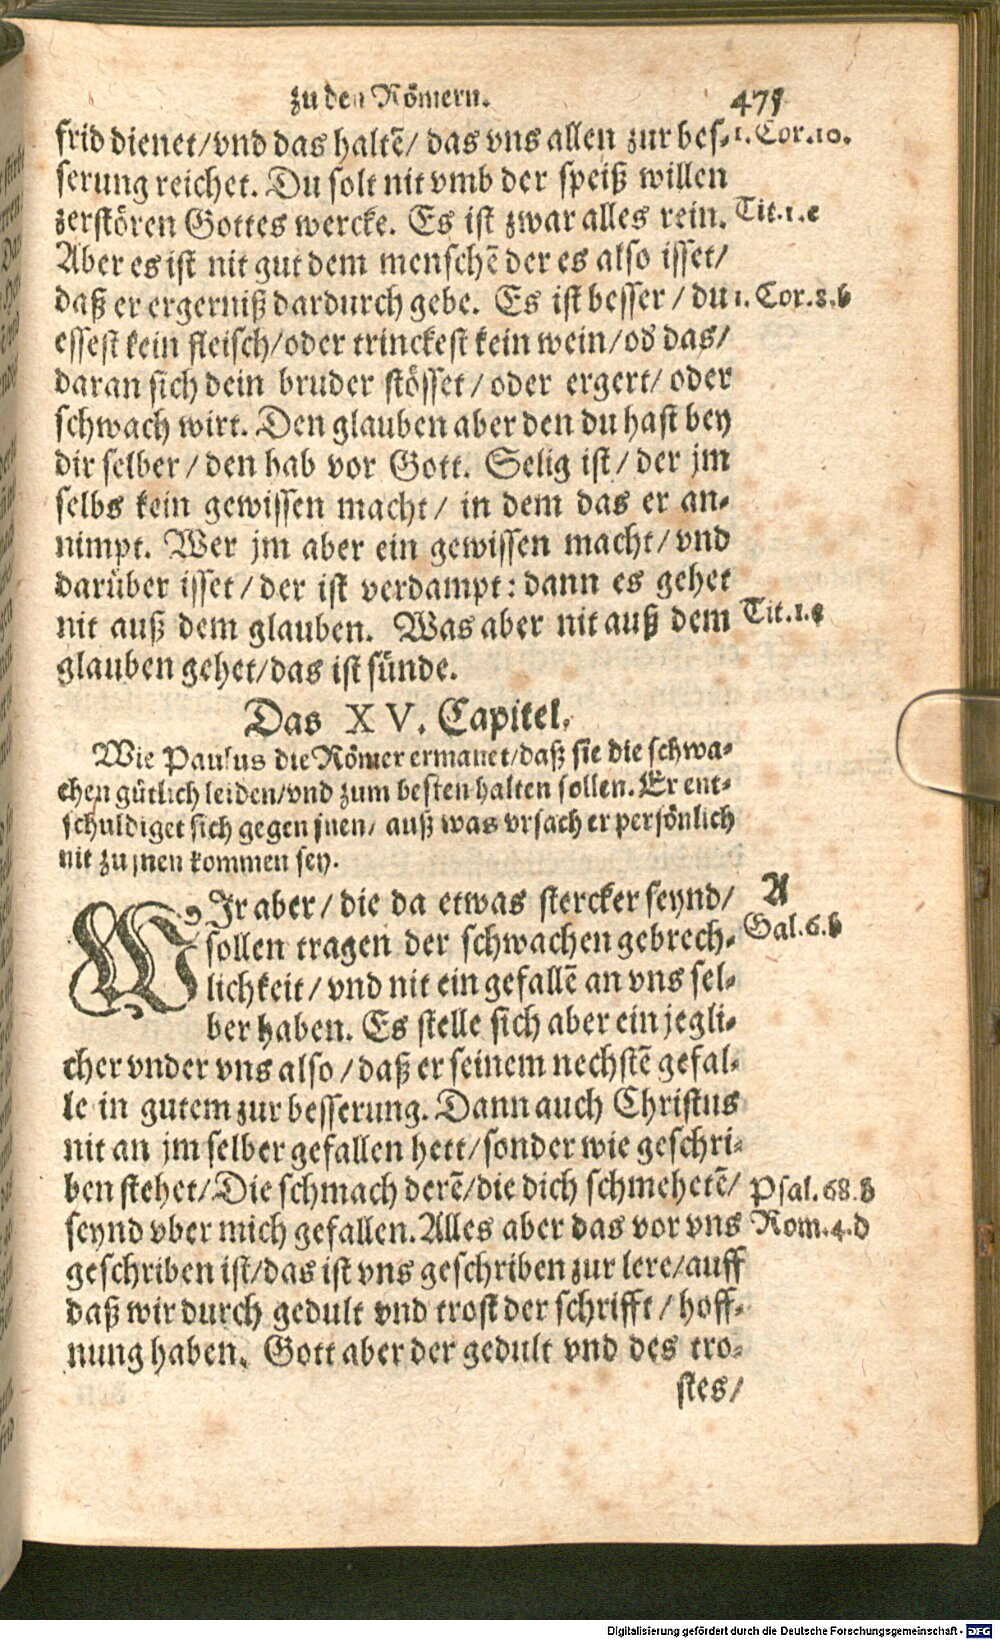 zu den Römern. 471
frid dienet/vnd das haltē/ das vns allen zur bes- 1. Cor. 10.
serung reichet. Du solt nit vmb der speiß willen
zerstören Gottes wercke. Es ist zwar alles rein. Tit. 1. c
Aber es ist nit gut dem menschē der es also isset/
daß er ergerniß dardurch gebe. Es ist besser/ du 1. Cor. 8. b
essest kein fleisch/oder trinckest kein wein/od das/
daran sich dein bruder stösset/ oder ergert/ oder
schwach wirt. Den glauben aber den du hast bey
dir selber/ den hab vor Gott. Selig ist/ der jm
selbs kein gewissen macht/ in dem das er an-
nimpt. Wer jm aber ein gewissen macht/ vnd
darüber isset/ der ist verdampt: dann es gehet
nit auß dem glauben. Was aber nit auß dem Tit. 1. c
glauben gehet/das ist sünde.
Das XV. Capitel.
Wie Paulus die Römer ermanet/daß sie die schwa-
chen gütlich leiden/vnd zum besten halten sollen. Er ent-
schuldiget sich gegen jnen/ auß was vrsach er persönlich
nit zu jnen kommen sey.
WJr aber/ die da etwas stercker seynd/ A
sollen tragen der schwachen gebrech- Gal. 6. b
lichkeit/ vnd nit ein gefallē an vns sel-
ber haben. Es stelle sich aber ein jegli-
cher vnder vns also/ daß er seinem nechstē gefal-
le in gutem zur besserung. Dann auch Christus
nit an jm selber gefallen hett/sonder wie geschri-
ben stehet/Die schmach derē/die dich schmehetē/ Psal. 68. b
seynd vber mich gefallen. Alles aber das vor vns Rom. 4. d
geschriben ist/das ist vns geschriben zur lere/auff
daß wir durch gedult vnd trost der schrifft/ hoff-
nung haben. Gott aber der gedult vnd des tro-
stes/
Digitalisierung gefördert durch die Deutsche Forschungsgemeinschaft - DFG